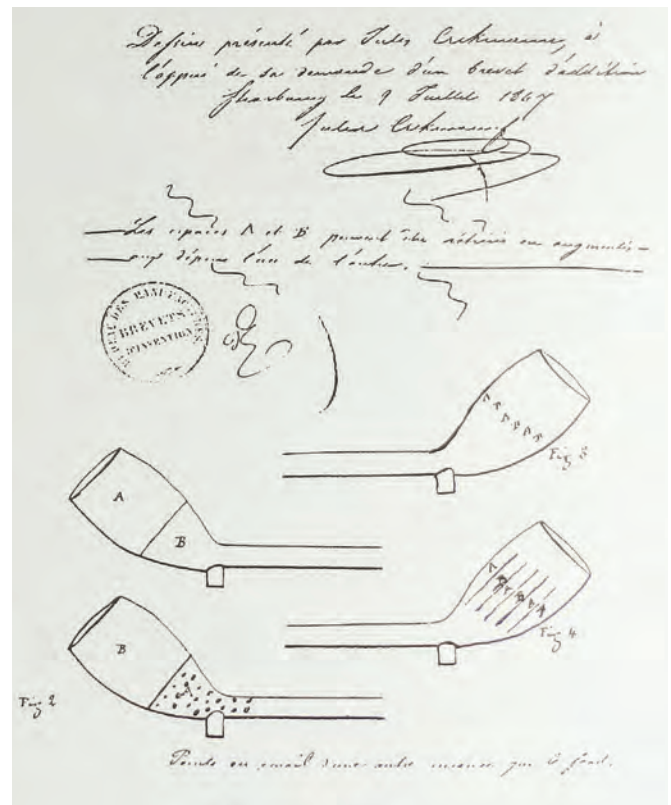 Dessins présenté par Jules Crekmanne, à
l'appui de sa demande d'un brevet d'addition
Strasbourg le 9 Juillet 1867
Jules
Les espaces A et B peuvent être rétrécis ou augmentés
aux dépens l'un de l'autre.
BUREAU DES MANUFACTURES
BREVETS
D'INVENTION
Fig 3
A
B
Fig 4
B
A
Fig 2
Points en émail d'une autre nuance que le fond.